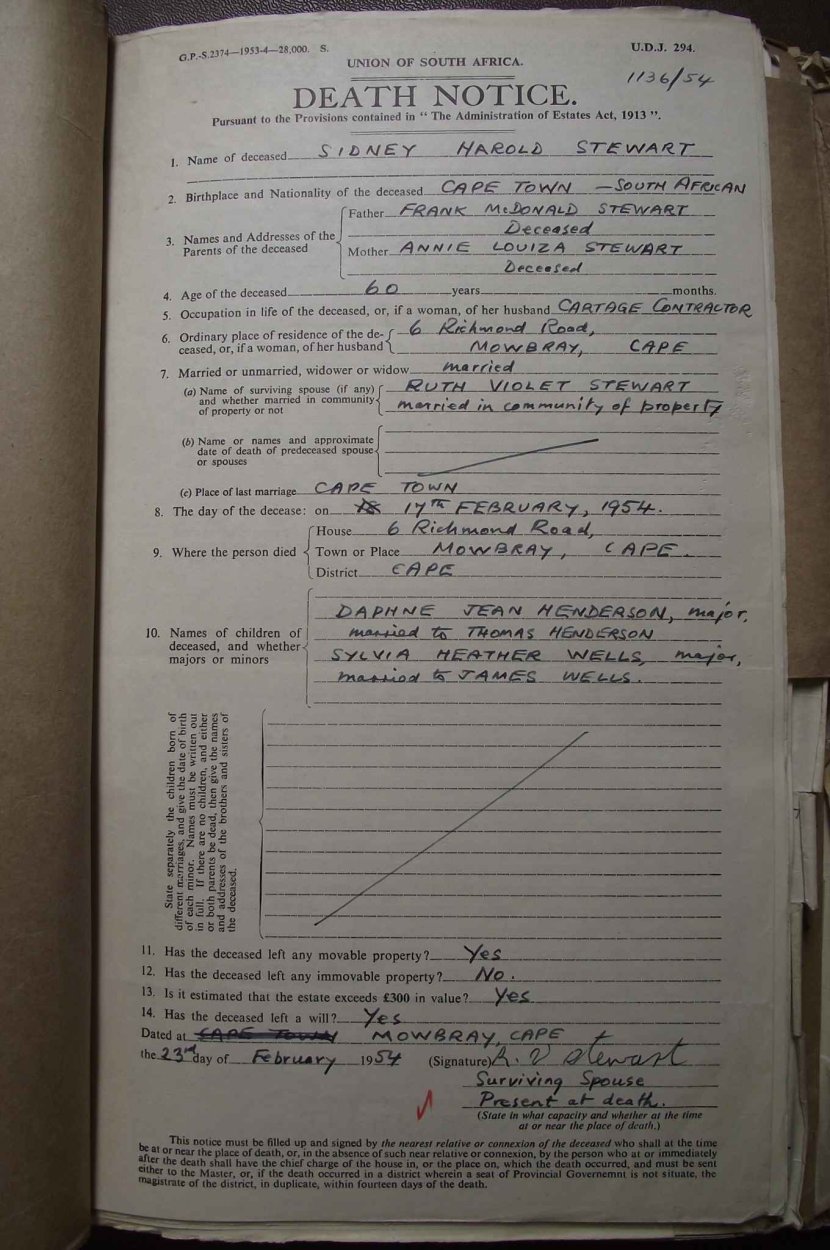 G.P.-S.2374—1953-4—28,000. S. U.D.J. 294.
UNION OF SOUTH AFRICA.
1136/54
DEATH NOTICE.
Pursuant to the Provisions contained in “ The Administration of Estates Act, 1913 ”.
1. Name of deceased SIDNEY HAROLD STEWART
2. Birthplace and Nationality of the deceased CAPE TOWN — SOUTH AFRICAN
3. Names and Addresses of the Parents of the deceased
Father FRANK McDONALD STEWART
Deceased
Mother ANNIE LOUIZA STEWART
Deceased
4. Age of the deceased 60 years months.
5. Occupation in life of the deceased, or, if a woman, of her husband CARTAGE CONTRACTOR
6. Ordinary place of residence of the de- 6 Richmond Road,
ceased, or, if a woman, of her husband MOWBRAY, CAPE
7. Married or unmarried, widower or widow married
(a) Name of surviving spouse (if any) RUTH VIOLET STEWART
and whether married in community married in community of property
of property or not
(b) Name or names and approximate
date of death of predeceased spouse
or spouses
(c) Place of last marriage CAPE TOWN
8. The day of the decease: on 17th FEBRUARY, 1954.
House 6 Richmond Road,
9. Where the person died Town or Place MOWBRAY, CAPE.
District CAPE
DAPHNE JEAN HENDERSON, major,
10. Names of children of married to THOMAS HENDERSON
deceased, and whether SYLVIA HEATHER WELLS, major,
majors or minors
married to JAMES WELLS.
State separately the children born of
different marriages, and give the date of birth
of each minor. Names must be written out
in full. If there are no children, and either
or both parents be dead, then give the names
and addresses of the brothers and sisters of
the deceased.
11. Has the deceased left any movable property? Yes
12. Has the deceased left any immovable property? No.
13. Is it estimated that the estate exceeds £300 in value? Yes
14. Has the deceased left a will? Yes
Dated at CAPE TOWN MOWBRAY, CAPE
the 23rd day of February 1954 (Signature) R. V Stewart
Surviving Spouse
Present at death.
(State in what capacity and whether at the time
at or near the place of death.)
This notice must be filled up and signed by the nearest relative or connexion of the deceased who shall at the time
be at or near the place of death, or, in the absence of such near relative or connexion, by the person who at or immediately
after the death shall have the chief charge of the house in, or the place on, which the death occurred, and must be sent
either to the Master, or, if the death occurred in a district wherein a seat of Provincial Governemnt is not situate, the
magistrate of the district, in duplicate, within fourteen days of the death.